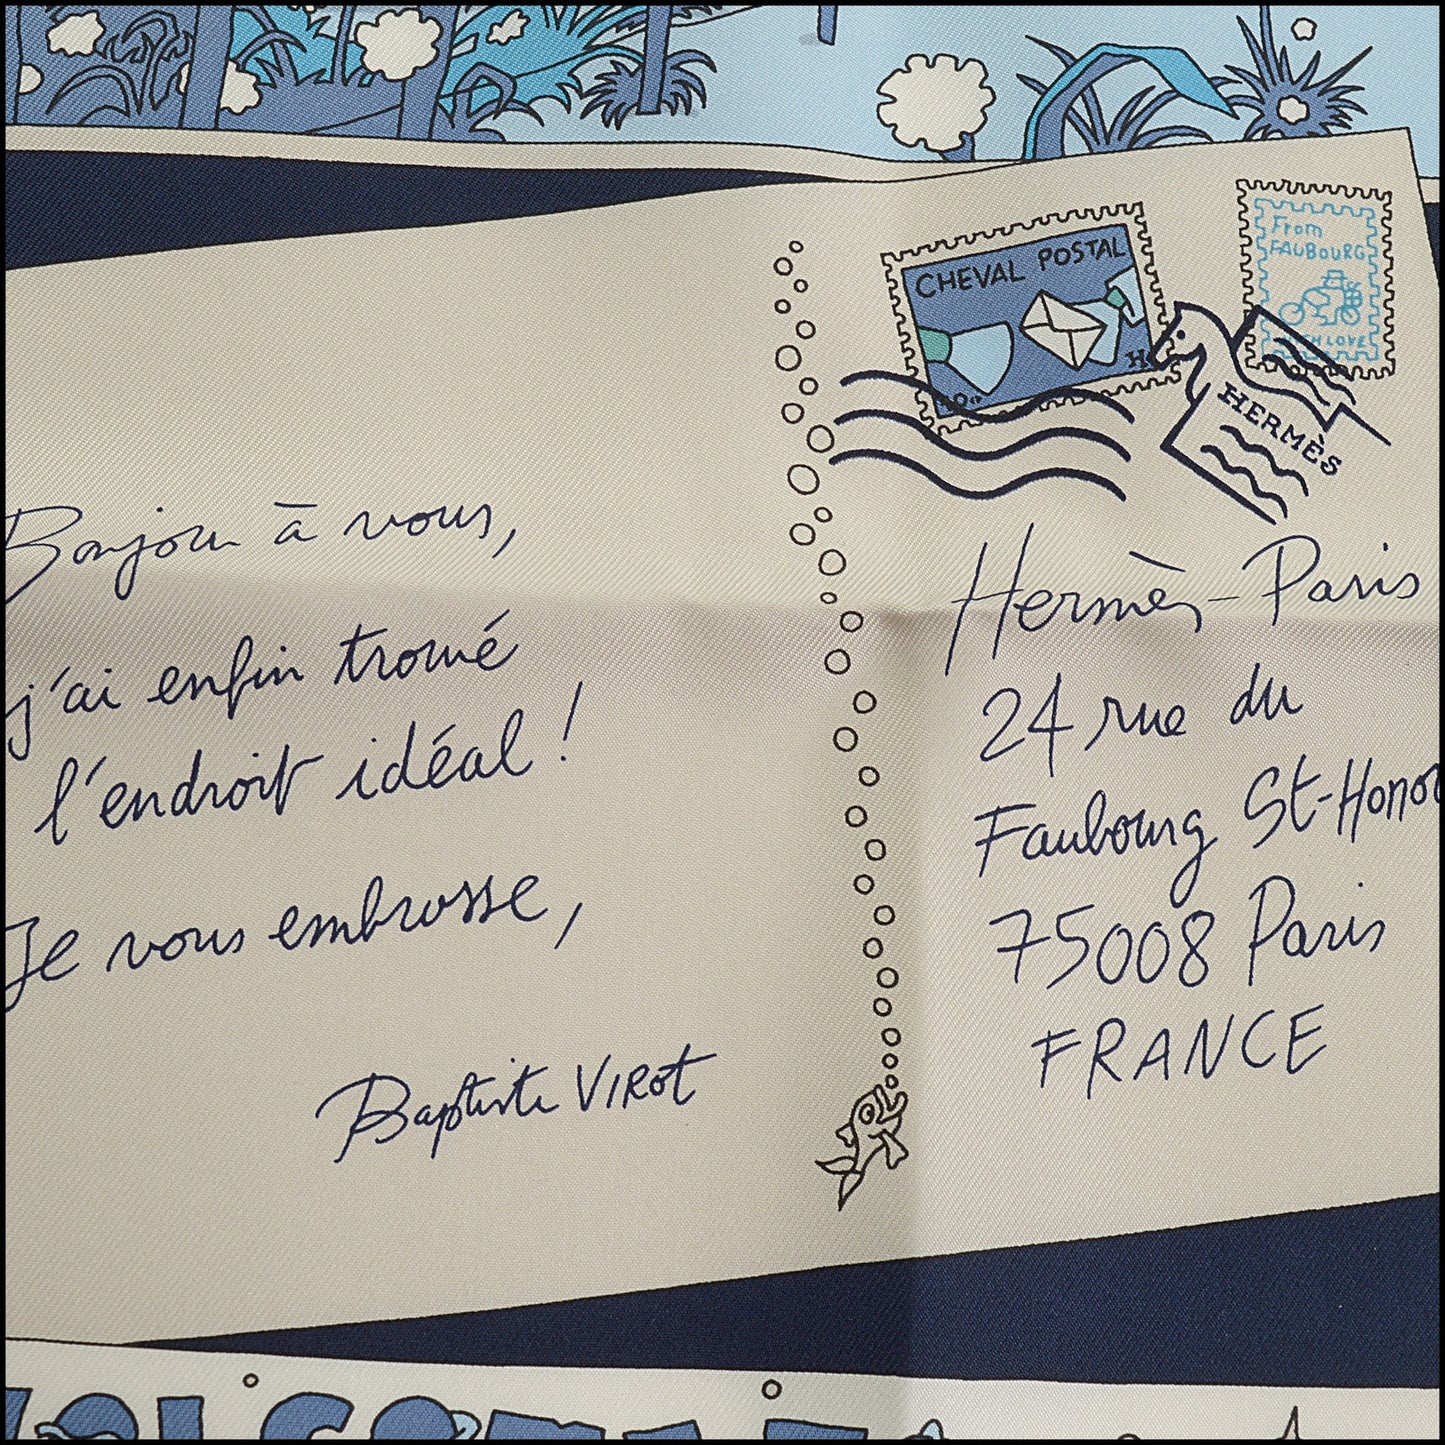 CHEVAL POSTAL
From
FAUBOURG
WITH LOVE
HERMÈS
Bonjour à vous,
j'ai enfin trouvé
l'endroit idéal !
Je vous embrasse,
Baptiste VIROT
Hermès-Paris
24 rue du
Faubourg St-Honor
75008 Paris
FRANCE